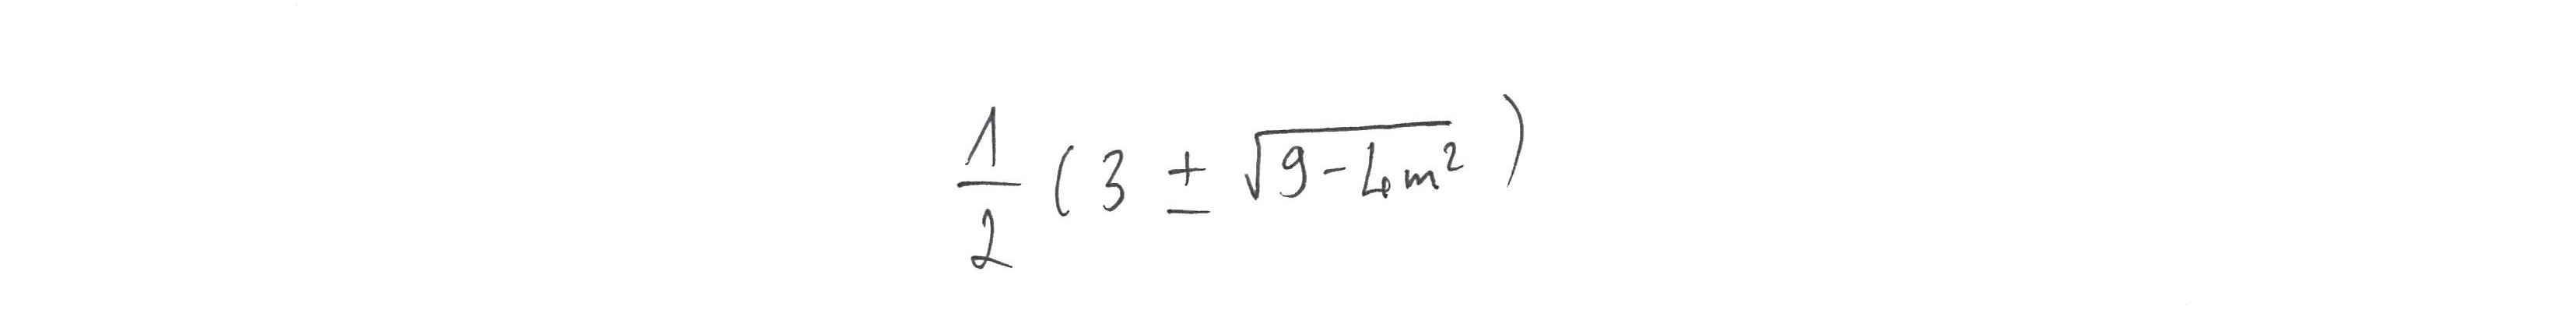 \frac{1}{2} ( 3 \pm \sqrt{9 - 4m^2} )